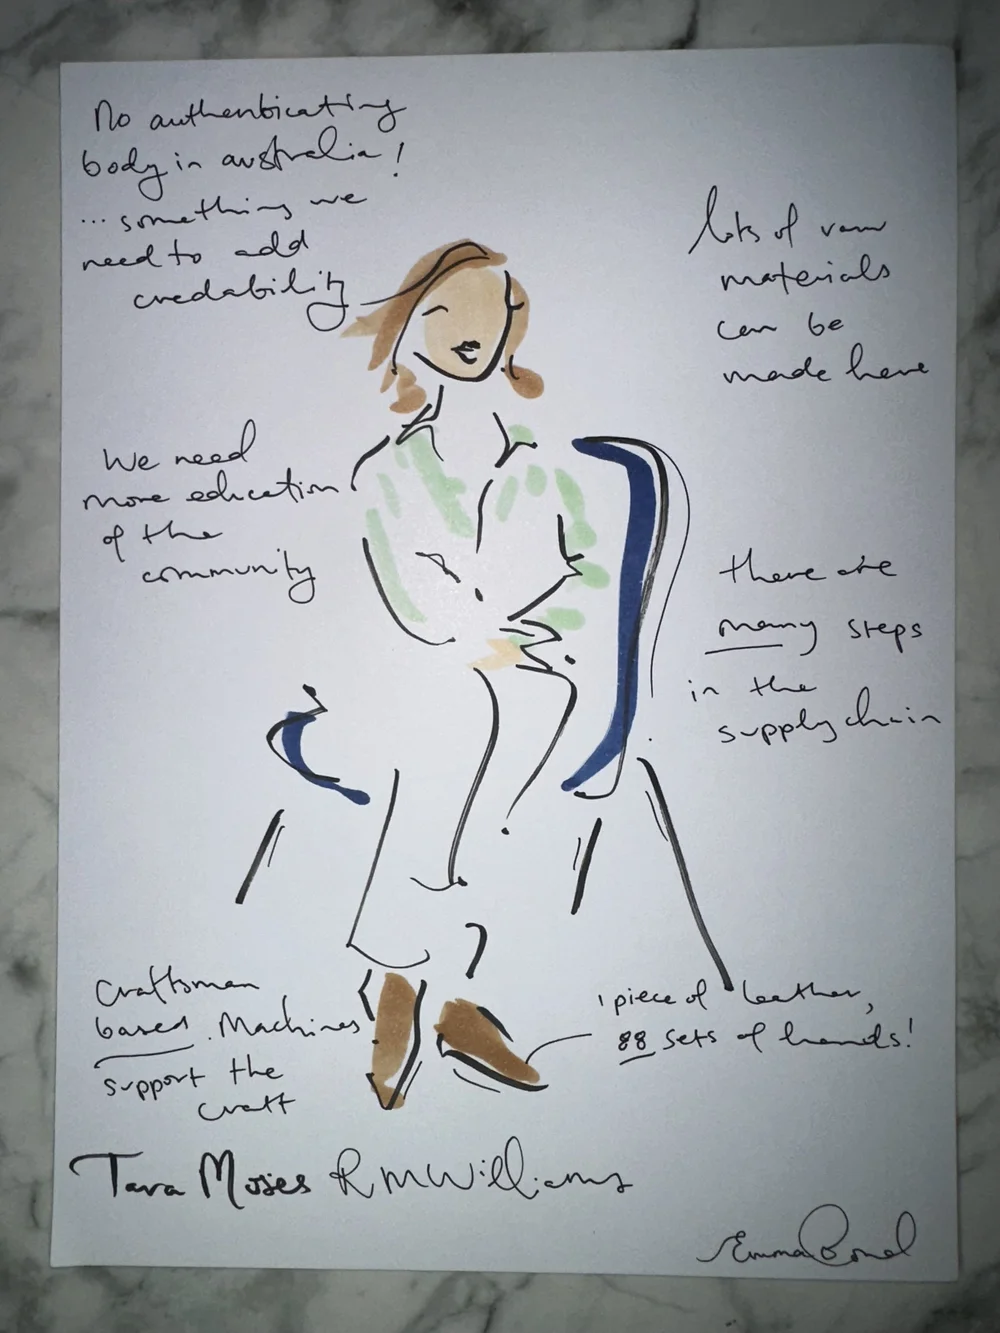 No authenticating
body in australia!
... something we
need to add
credability
lots of raw
materials
can be
made here
We need
more education
of the
community
there are
many steps
in the
supply chain
Craftsman
based. Machines
support the
craft
1 piece of leather,
88 sets of hands!
Tara Moses R M Williams
Emma